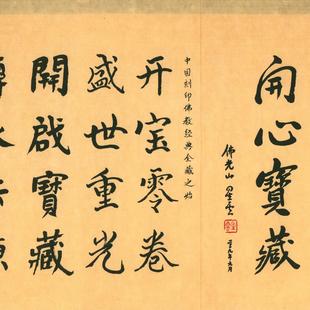 開心寶藏
佛光山 星雲
中国刻印佛教经典全藏之始
开宝零卷
盛世重光
開啟寶藏